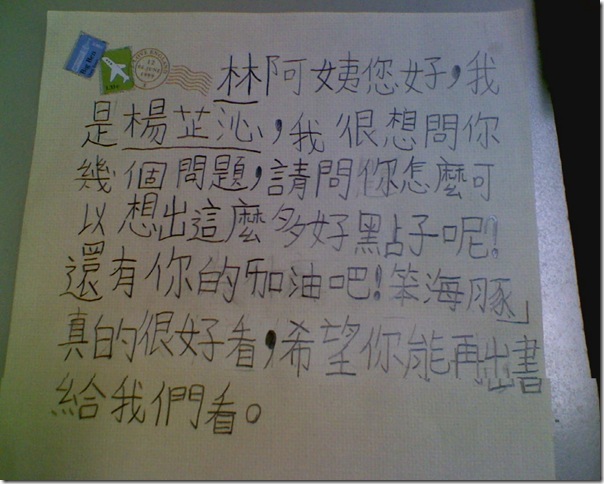 林阿姨您好，我
是楊芷沁，我很想問你
幾個問題，請問你怎麼可
以想出這麼多好點子呢！
還有你的加油吧！笨海豚」
真的很好看，希望你能再出書
給我們看。